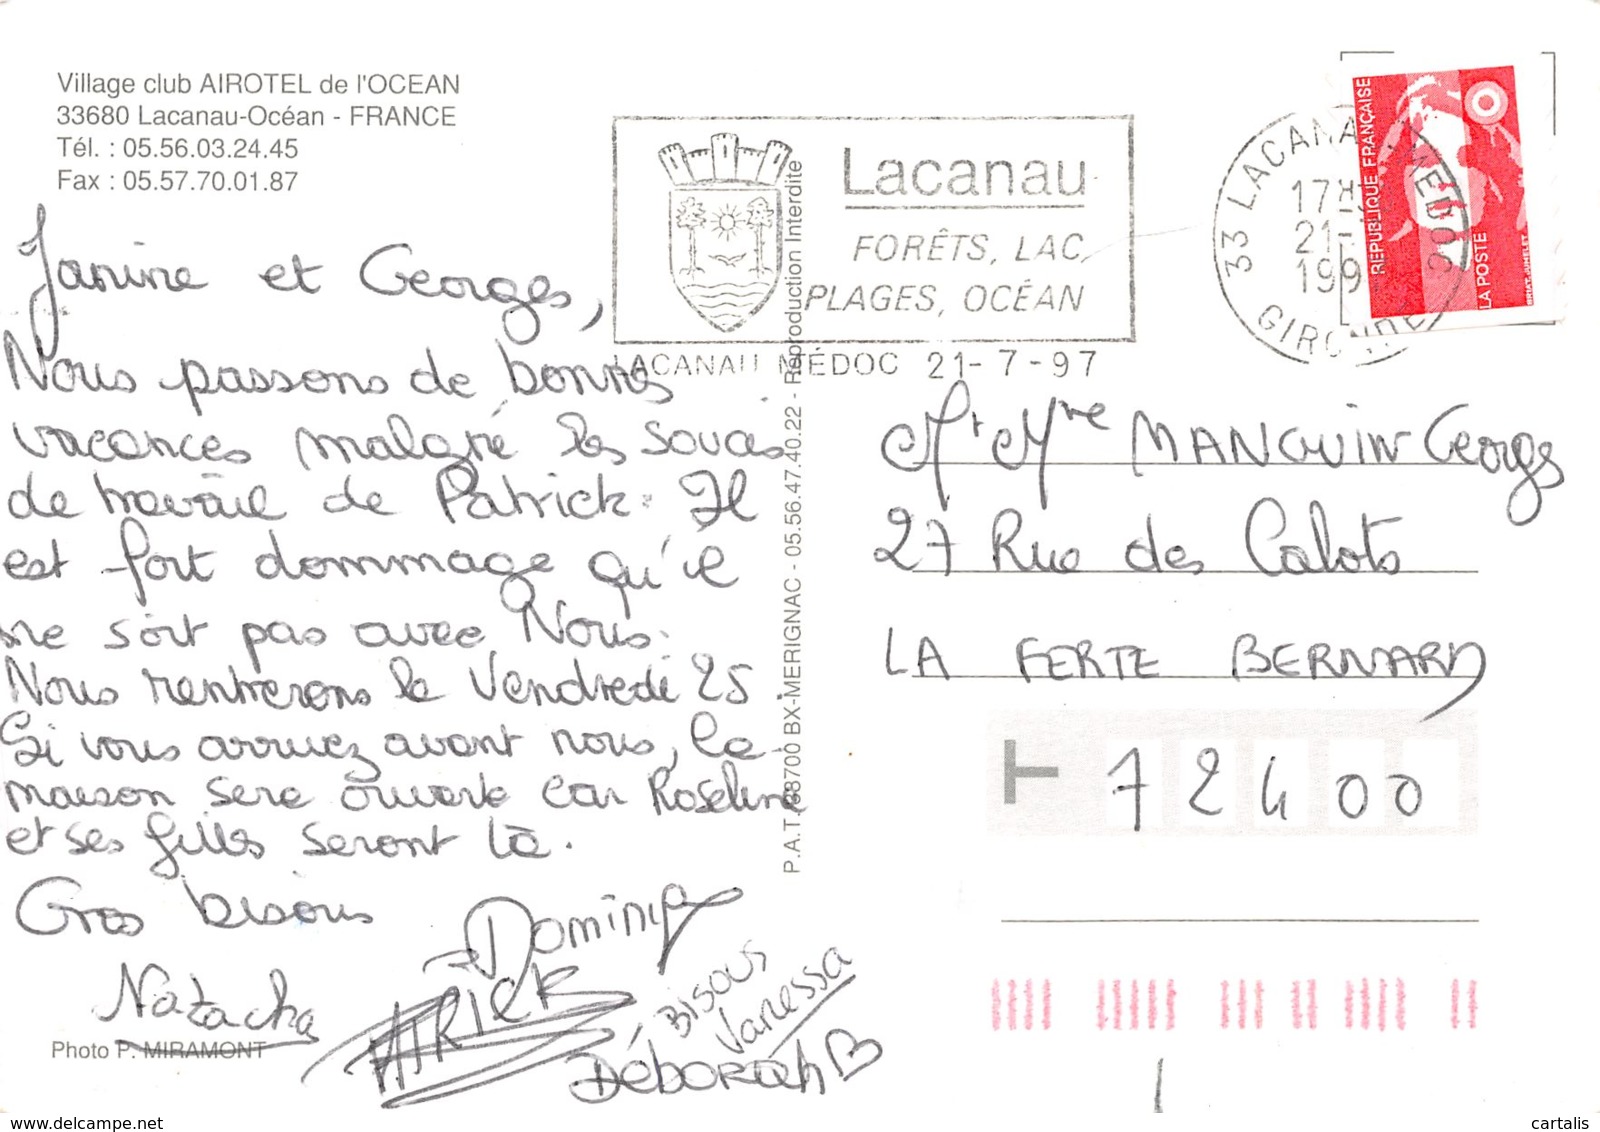 Village club AIROTEL de l'OCEAN
33680 Lacanau-Océan - FRANCE
Tél. : 05.56.03.24.45
Fax : 05.57.70.01.87
Janine et Georges,
Nous passons de bonnes
vacances malgré les soucis
de travail de Patrick. Il
est fort dommage qu'il
ne soit pas avec Nous.
Nous rentrerons le Vendredi 25.
Si vous arrivez avant nous, la
maison sera ouverte car Roseline
et ses filles seront là.
Gros bisous
Dominique
Natacha
Bisous
Vanessa
Déborah
Photo P. MIRAMONT
P.A.T. 33700 BX-MERIGNAC - 05.56.47.40.22 - Reproduction Interdite
Lacanau
FORÊTS, LAC,
PLAGES, OCÉAN
LACANAU MÉDOC 21-7-97
33 LACANAU MEDOC
17H
21-
199
GIRONDE
RÉPUBLIQUE FRANÇAISE
LA POSTE
Mr Mme MANGUIN Georges
27 Rue des Calots
LA FERTE BERNARD
72400
cartalis
www.delcampe.net